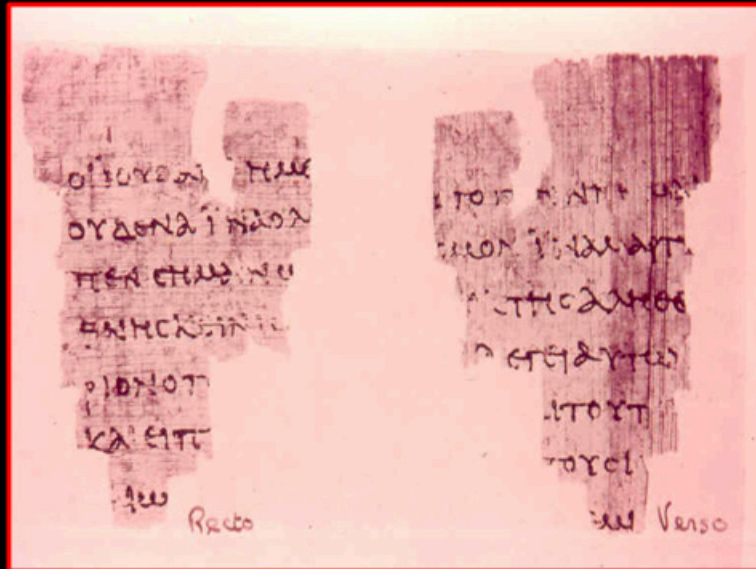 ΟΙ ΙΟΥΔΑΙ ΗΜΕ
ΟΥΔΕΝΑ ΪΝΑ Ο Λ
ΠΕΝ ϹΗΜΑΙΝΩ
ΘΝΗϹΚΕΙΝ
ΡΙΟΝ Ο Π
ΚΑΙ ΕΙΠ
ΑΙΩ
Recto
ΤΟ
ϹΜΟΝ ΪΝΑ ΜΑΡΤ
ΤΗϹ ΑΛΗΘΕ
ΛΕΓΕΙ ΑΥΤΩ
ΑΙ ΤΟΥΤ
ΤΟΥϹ Ι
Verso